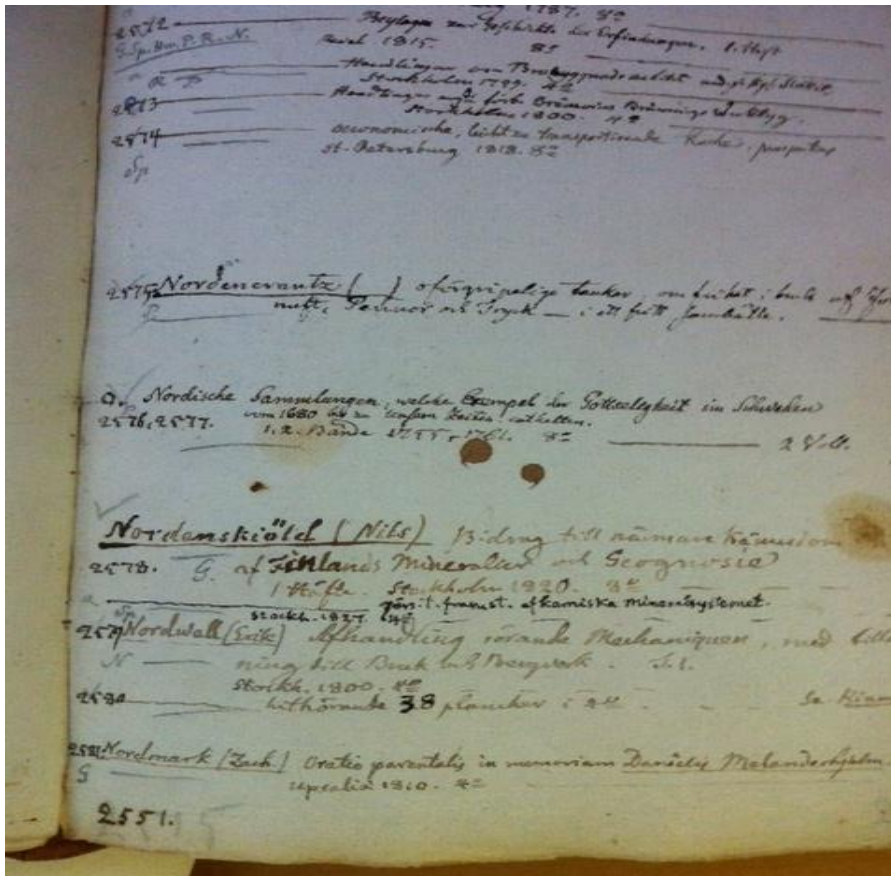 1787. 8º
2572 Beylagen zur Geschichte der Erfindungen. 1. Heft
G. Sp. Hm. P. R. N. 1815. 8º
Handlingar om
Stockholm 1799. 4º
2573 Handlingar
Stockholm 1800. 4º
2574 oeconomische, leicht zu transportirende Küche
St. Petersburg 1818. 8º
Sp
2575 Nordencrantz ( ) oförgripelige tankar, om frihet i bruk af
nuft, Pennor och Tryck — i ett fritt samhälle.
a. Nordische Sammlungen, welche Exempel der Gottseligkeit im Schweden
2576, 2577. vom 1680 bis zu unsern Zeiten enthalten.
1. 2. Bände 1755, 1761. 8º 2 Voll.
Nordenskiöld (Nils) Bidrag till närmare kännedom
2578. G. af Finlands Mineralier och Geognosie
1 Häfte. Stockholm 1820. 8º
försök framst. af kemiska mineralsystemet.
Sp Stockh. 1827. 4º
2579 Nordwall (Erik) Afhandling rörande Mechaniquen, med
N ning till Bruk och Bergverk. T. 1.
Stockh. 1800. 4º
2580 hithörande 38 plancher i 4º
2581 Nordmark (Zach.) Oratio parentalis in memoriam Danielis Melanderhjelm
G Upsalia 1810. 4º
2551.